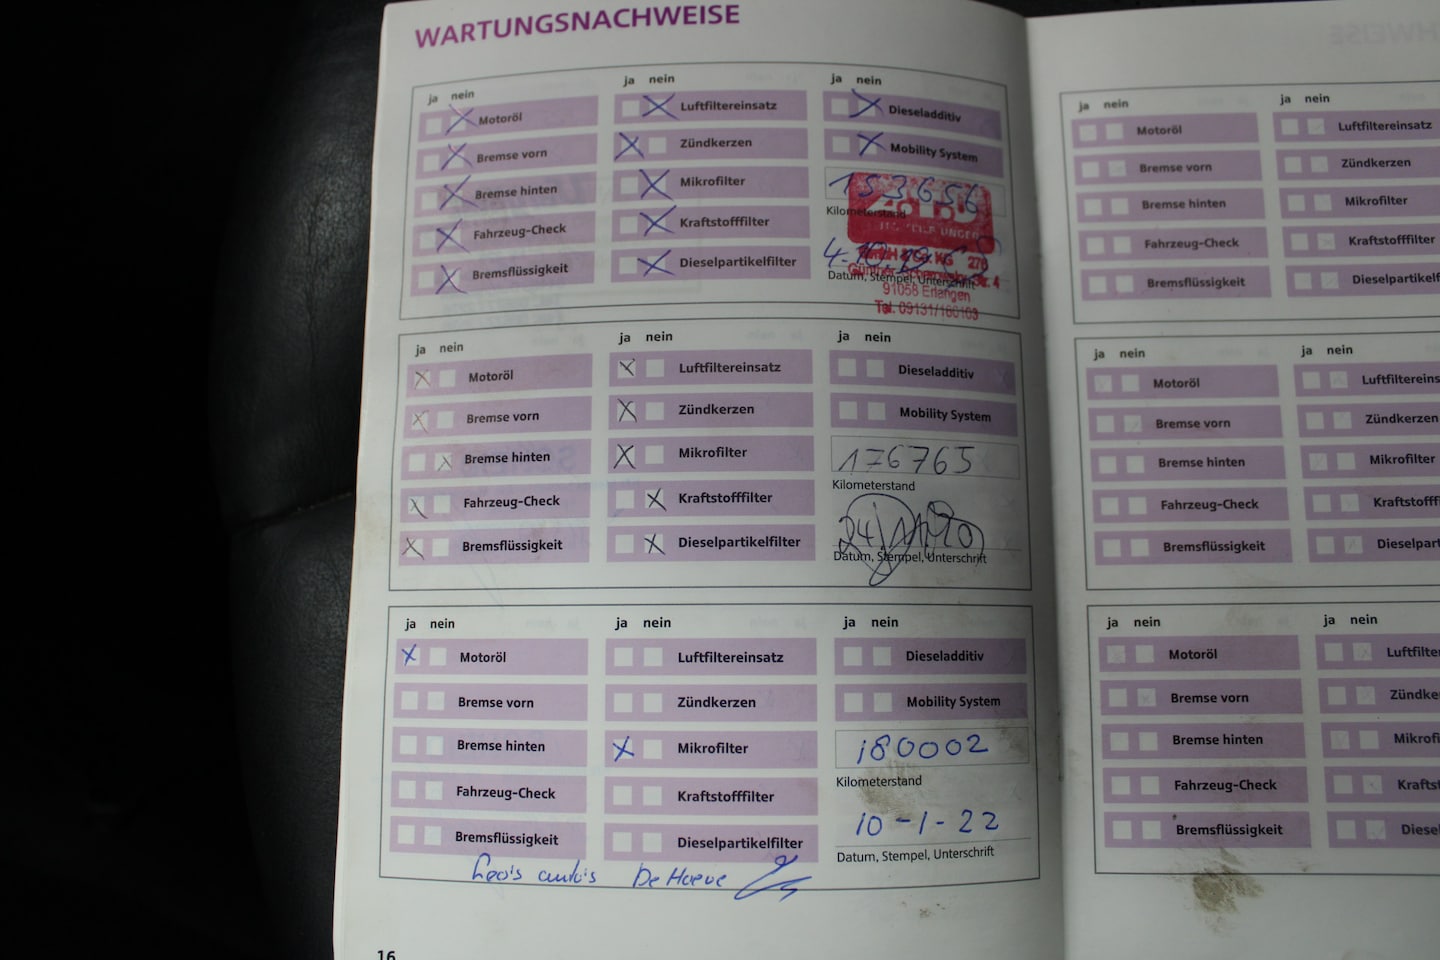 WARTUNGSNACHWEISE
ja nein
Motoröl
Bremse vorn
Bremse hinten
Fahrzeug-Check
Bremsflüssigkeit
ja nein
Luftfiltereinsatz
Zündkerzen
Mikrofilter
Kraftstofffilter
Dieselpartikelfilter
ja nein
Dieseladditiv
Mobility System
153656
Kilometerstand
Datum, Stempel, Unterschrift
91058 Erlangen
Tel. 09131/160103
ja nein
Motoröl
Bremse vorn
Bremse hinten
Fahrzeug-Check
Bremsflüssigkeit
ja nein
Luftfiltereinsatz
Zündkerzen
Mikrofilter
Kraftstofffilter
Dieselpartikelfilter
ja nein
Dieseladditiv
Mobility System
176765
Kilometerstand
Datum, Stempel, Unterschrift
ja nein
Motoröl
Bremse vorn
Bremse hinten
Fahrzeug-Check
Bremsflüssigkeit
ja nein
Luftfiltereinsatz
Zündkerzen
Mikrofilter
Kraftstofffilter
Dieselpartikelfilter
ja nein
Dieseladditiv
Mobility System
180002
Kilometerstand
10-1-22
Datum, Stempel, Unterschrift
Leo's auto's De Hoeve
16
ja nein
Motoröl
Bremse vorn
Bremse hinten
Fahrzeug-Check
Bremsflüssigkeit
ja nein
Luftfiltereinsatz
Zündkerzen
Mikrofilter
Kraftstofffilter
Dieselpartikelf
ja nein
Motoröl
Bremse vorn
Bremse hinten
Fahrzeug-Check
Bremsflüssigkeit
ja nein
Luftfiltereins
Zündkerzen
Mikrofilter
Kraftstofff
Dieselpart
ja nein
Motoröl
Bremse vorn
Bremse hinten
Fahrzeug-Check
Bremsflüssigkeit
ja nein
Luftfilter
Zündke
Mikrofi
Krafts
Diesel